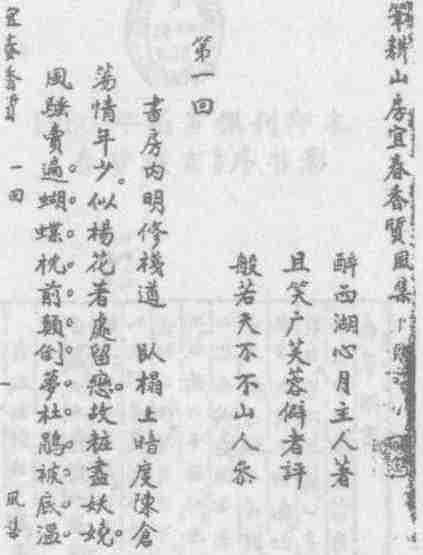 筆耕山房宜春香質風集
醉西湖心月主人著
且笑广芙蓉僻者評
般若天不不山人參
第一回
書房内明修棧道 臥榻上暗度陳倉
蕩情年少。似楊花着處留戀。故粧盡妖嬈。
風騷賣遍。蝴蝶枕前顛倒夢。杜鵑被底溫。
宜春香質 一回 一 風集